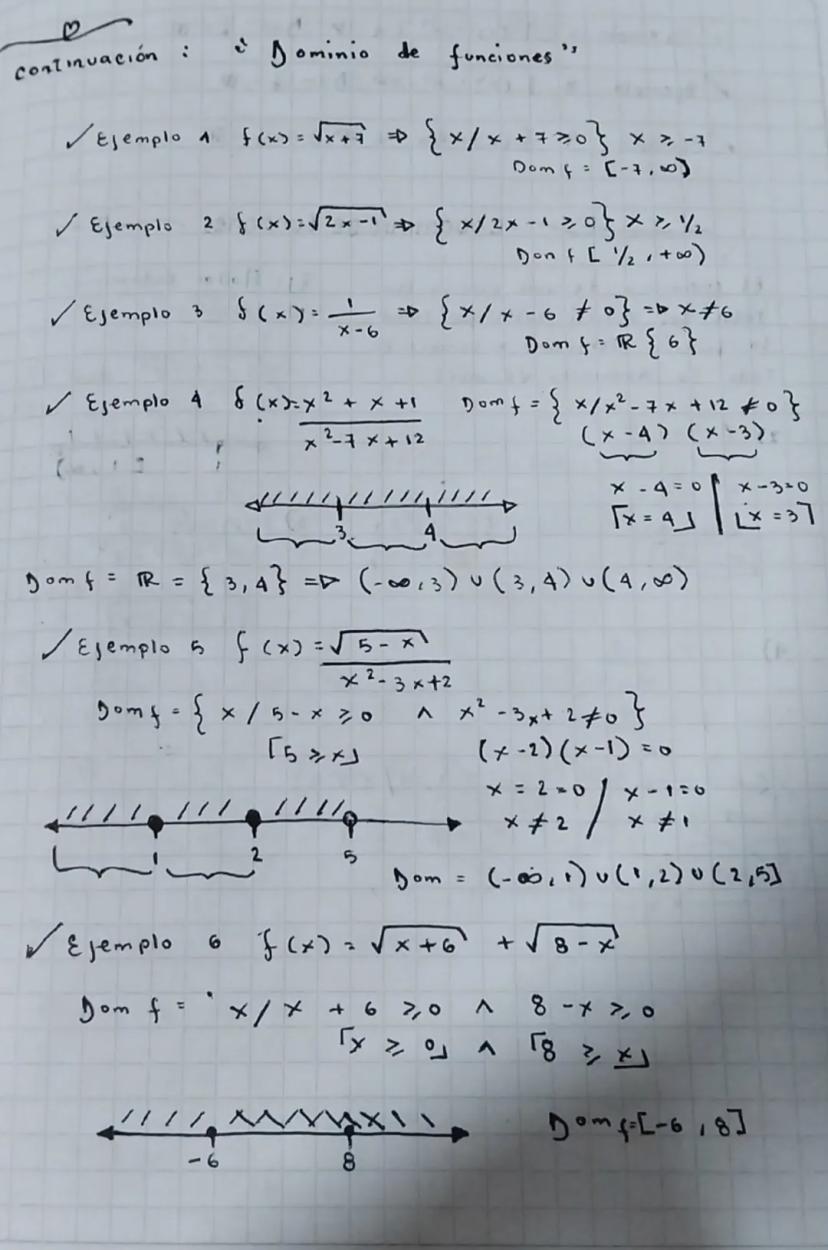 continuación : " Dominio de funciones"
✓ Ejemplo 1 f(x) = √x+7 ⇒ {x/x + 7 ≥ 0} x ≥ -7
Dom f = [-7, ∞)
✓ Ejemplo 2 f(x) = √2x-1 ⇒ {x/2x - 1 ≥ 0} x ≥ 1/2
Don f [ 1/2 , +∞)
✓ Ejemplo 3 f(x) = 1/(x-6) ⇒ {x/x - 6 ≠ 0} ⇒ x ≠ 6
Dom f = ℝ {6}
✓ Ejemplo 4 f(x) = (x² + x + 1)/(x² - 7x + 12) Dom f = {x/x² - 7x + 12 ≠ 0}
(x - 4) (x - 3)
x - 4 = 0 | x - 3 = 0
⌈x = 4⌋ | ⌊x = 3⌉
3 4
Dom f = ℝ = {3, 4} ⇒ (-∞, 3) ∪ (3, 4) ∪ (4, ∞)
✓ Ejemplo 5 f(x) = √5 - x/(x² - 3x + 2)
Dom f = {x / 5 - x ≥ 0 ∧ x² - 3x + 2 ≠ 0}
⌈5 ≥ x⌋ (x - 2)(x - 1) = 0
x = 2 = 0 / x - 1 = 0
x ≠ 2 / x ≠ 1
1 2 5
Dom = (-∞, 1) ∪ (1, 2) ∪ (2, 5]
✓ Ejemplo 6 f(x) = √x + 6 + √8 - x
Dom f = x/x + 6 ≥ 0 ∧ 8 - x ≥ 0
⌈x ≥ 0⌋ ∧ ⌈8 ≥ x⌋
-6 8
Dom f = [-6, 8]